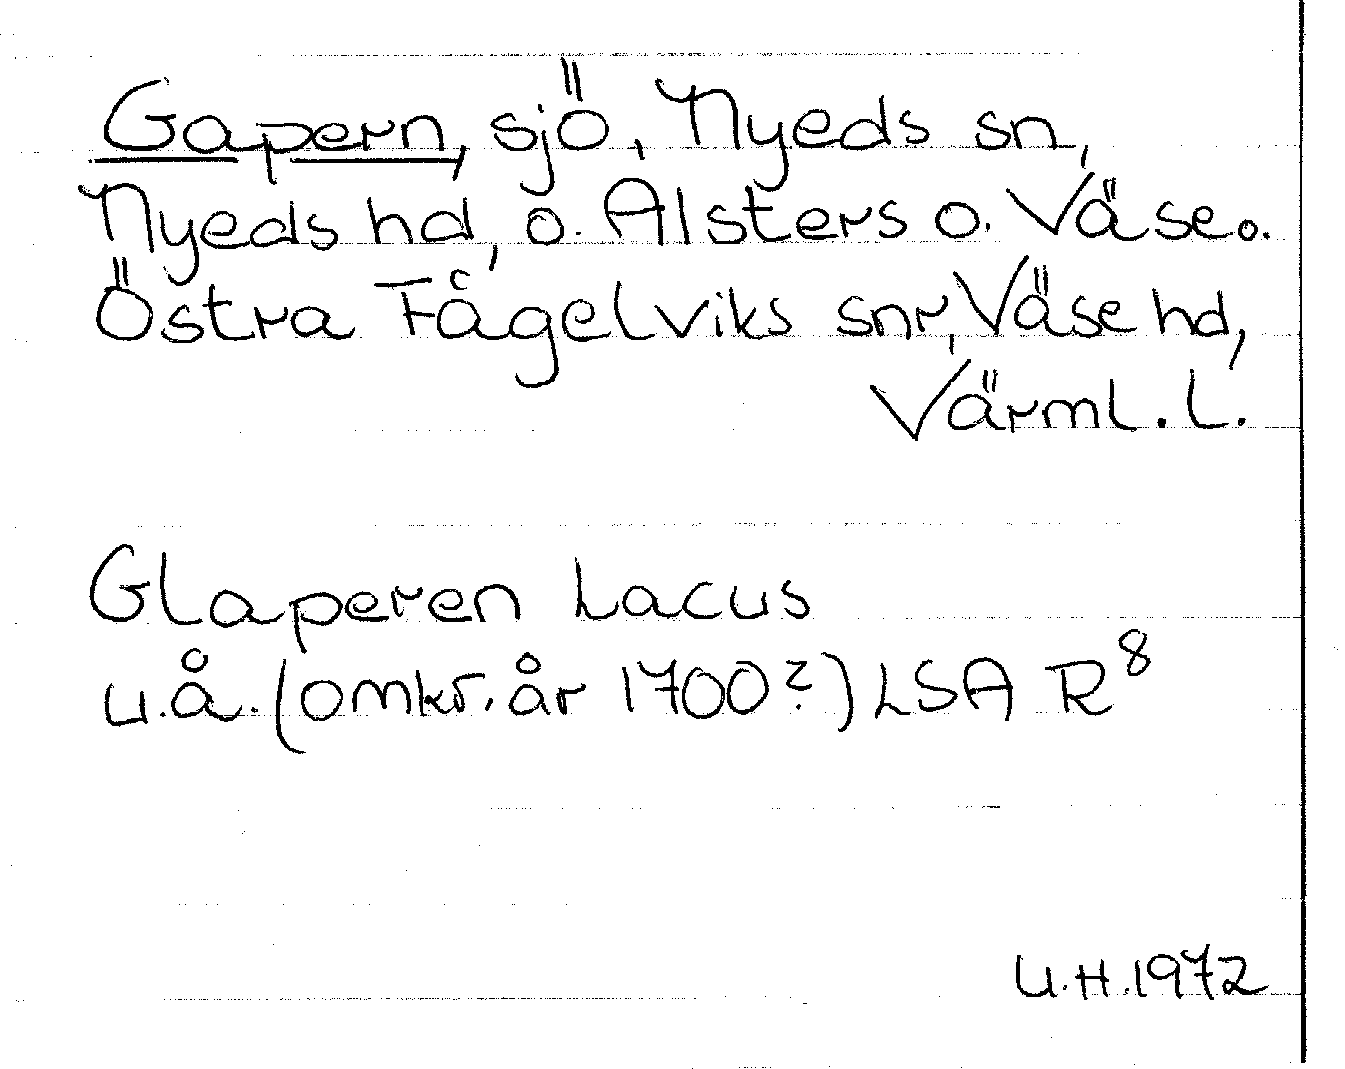 Gapern, sjö, Nyeds sn,
Nyeds hd, o. Alsters o. Väse o.
Östra Fågelviks snr, Väse hd,
Värml. l.
Glaperen Lacus
u.å. (omkr. år 1700?) LSA R⁸
U.H. 1972